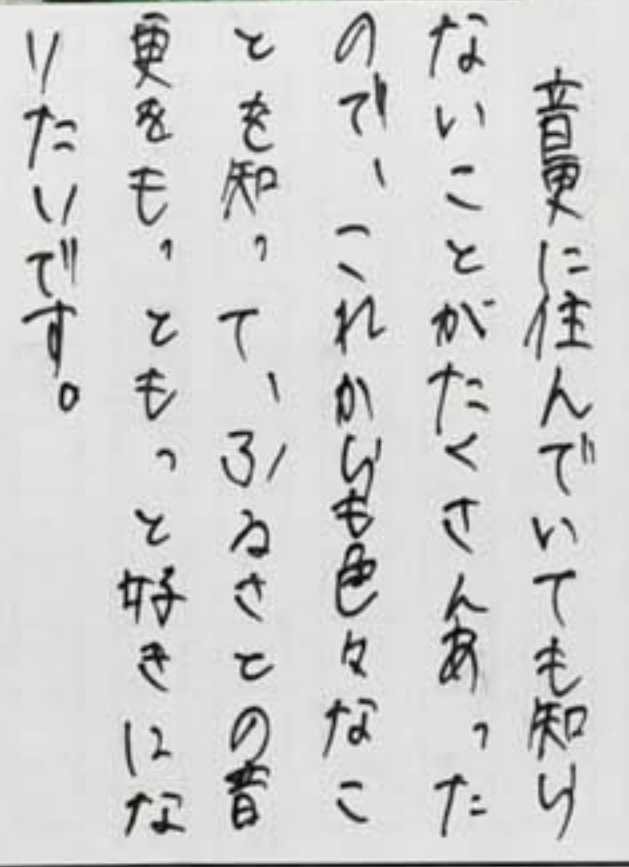 音更に住んでいても知り
ないことがたくさんあった
ので、これからも色々なこ
とを知って、ふるさとの音
更をもっともっと好きにな
りたいです。